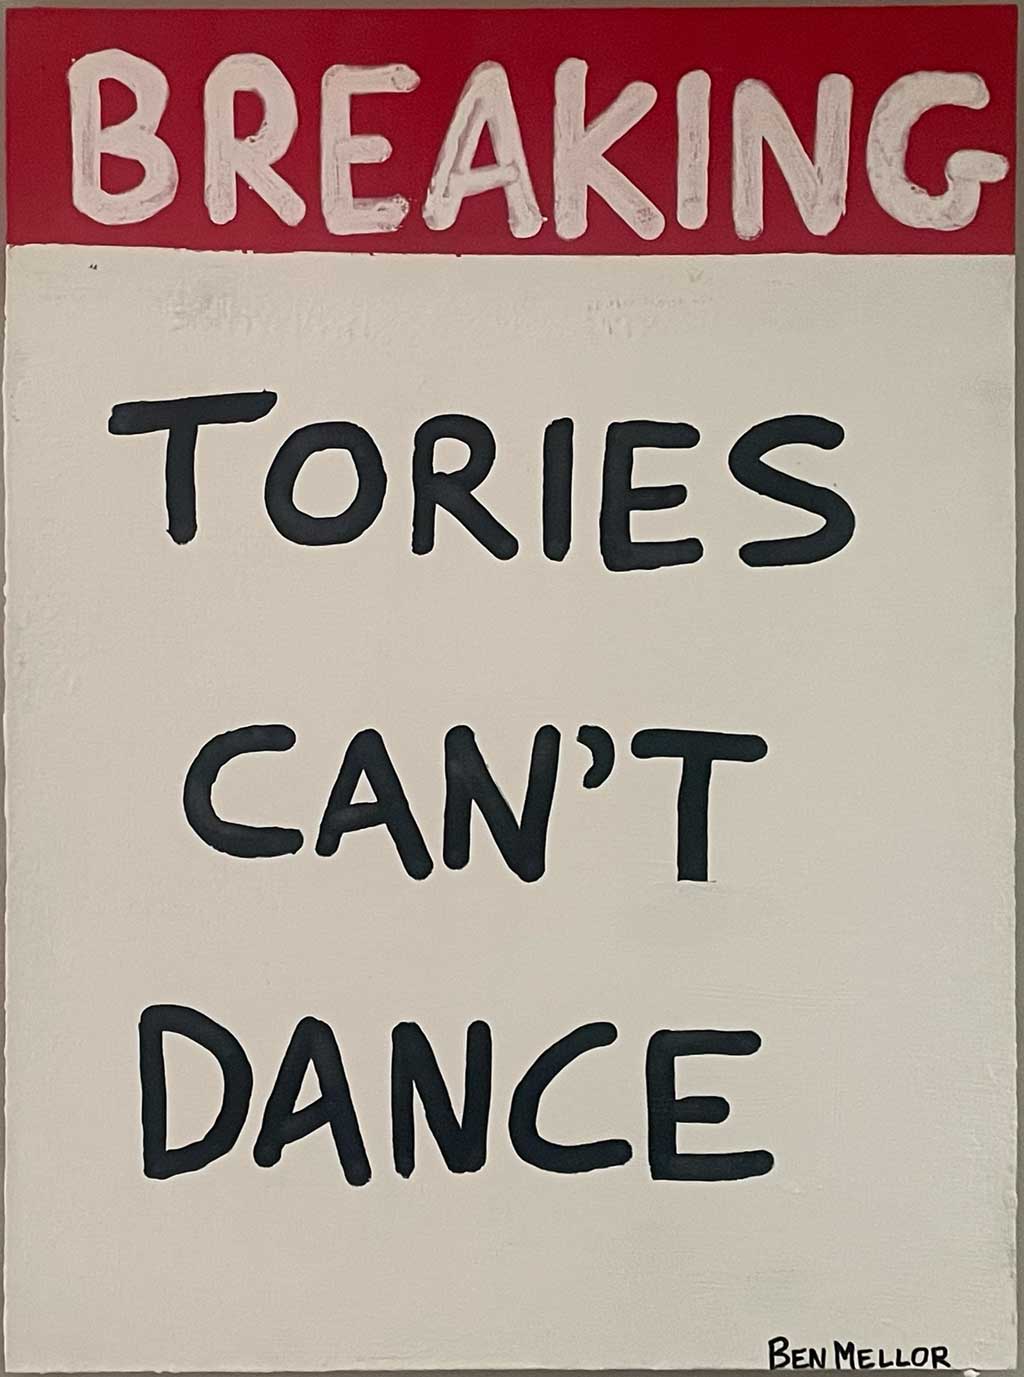 BREAKING
TORIES
CAN'T
DANCE
BEN MELLOR